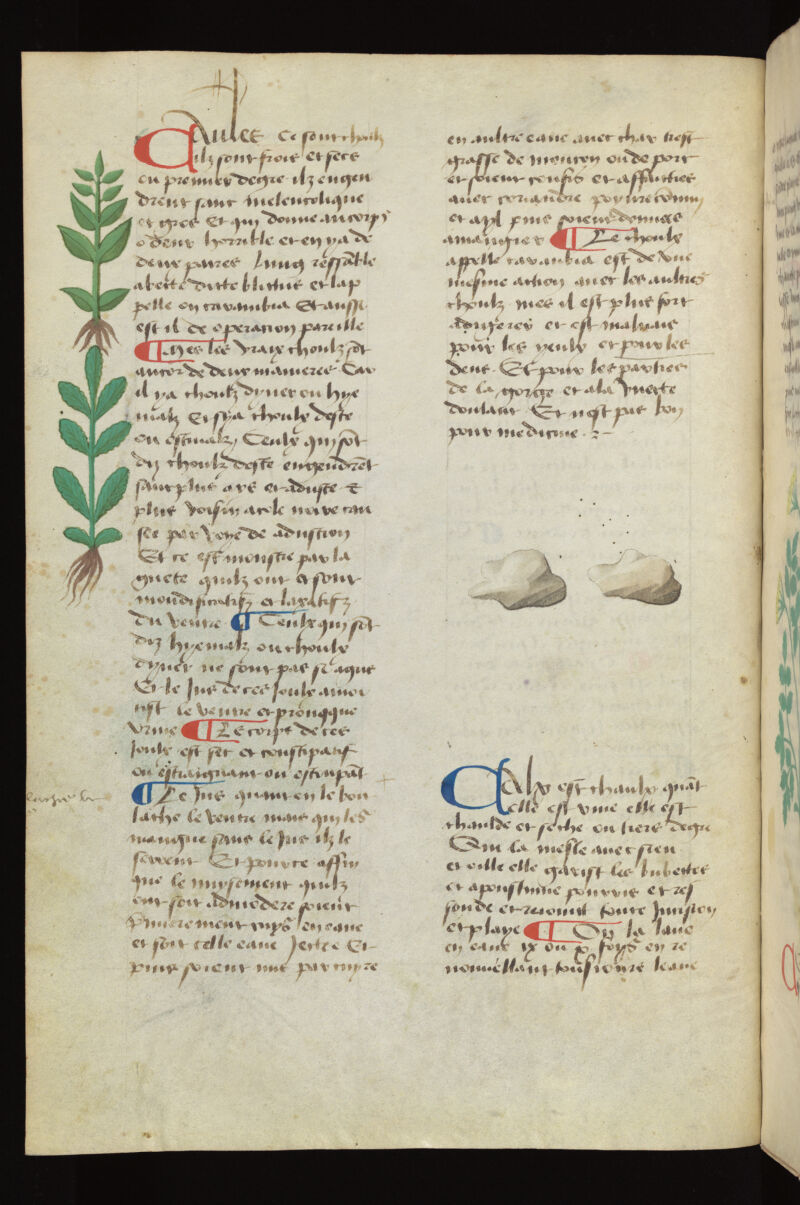 Caules ce sont choulz
ilz sont frois et secs
en premier degre ilz engen
drent sanc melencolique
et gros Et qui donne au corps
odeur horrible et en ya de
deux paires Lung
et lap
pelle en carambia Et aussi
est il de operacion pareille
¶ Mes les vraix choulz sont
de deux manieres Car
il ya choulz dyver ou hye
malz Et sya choulx deste
ou estivalz Ceulx qui sont
diz choulz deste engendrent
sanc plus acre et aduste et
plus voisin a cole noire cau
see par voye de adustion
Et ce est monstre par la
quilz ont et sont
mondificatifz et laxatifz
du ventre ¶ Ceulx qui sont
diz hyemalz ou choulx
dyver ne sont pas si agus
Et le jus de ces joulx amoi
tist le ventre et provoque
urine ¶ Le corps de ces
joulx est sec et constipatif
ou estraignant ou estoupant
¶ Le jus quant en le boit
lache le ventre mais qui les
mangue sans le jus ilz le
serrent Et pource affin
que le nuysement quilz
ont soit admodere soient
premierement cuys en eaue
et soit celle eaue jectee Et
puis soient mis par cuyre
en aultre eaue avec char tres
grasse de mouton ou de porc
et soient confis et affaicties
avec coriandre poyvre commin
et ayl puis soient donnees
a mangier ¶ Le choulx
appelle carambia est de une
mesme action avec les aultres
choulz mes il est plus fort
a digerer et est malvais
pour les yeulx et pour les
dens. Et pour les parties
de la gorge et a la luette
doulant Et nest pas bon
pour medicine
Calx est chaulx quant
elle est vive elle est
chaulde et seche ou tiers degre
Qui la mesle avec sien
et oille elle garist les bubettes
et apoustume pourrie et res
sonde et rejoint toute incision
et playe ¶ Qui la lave
en eaue ix ou x foys en re
nouvellant tousjours leaue